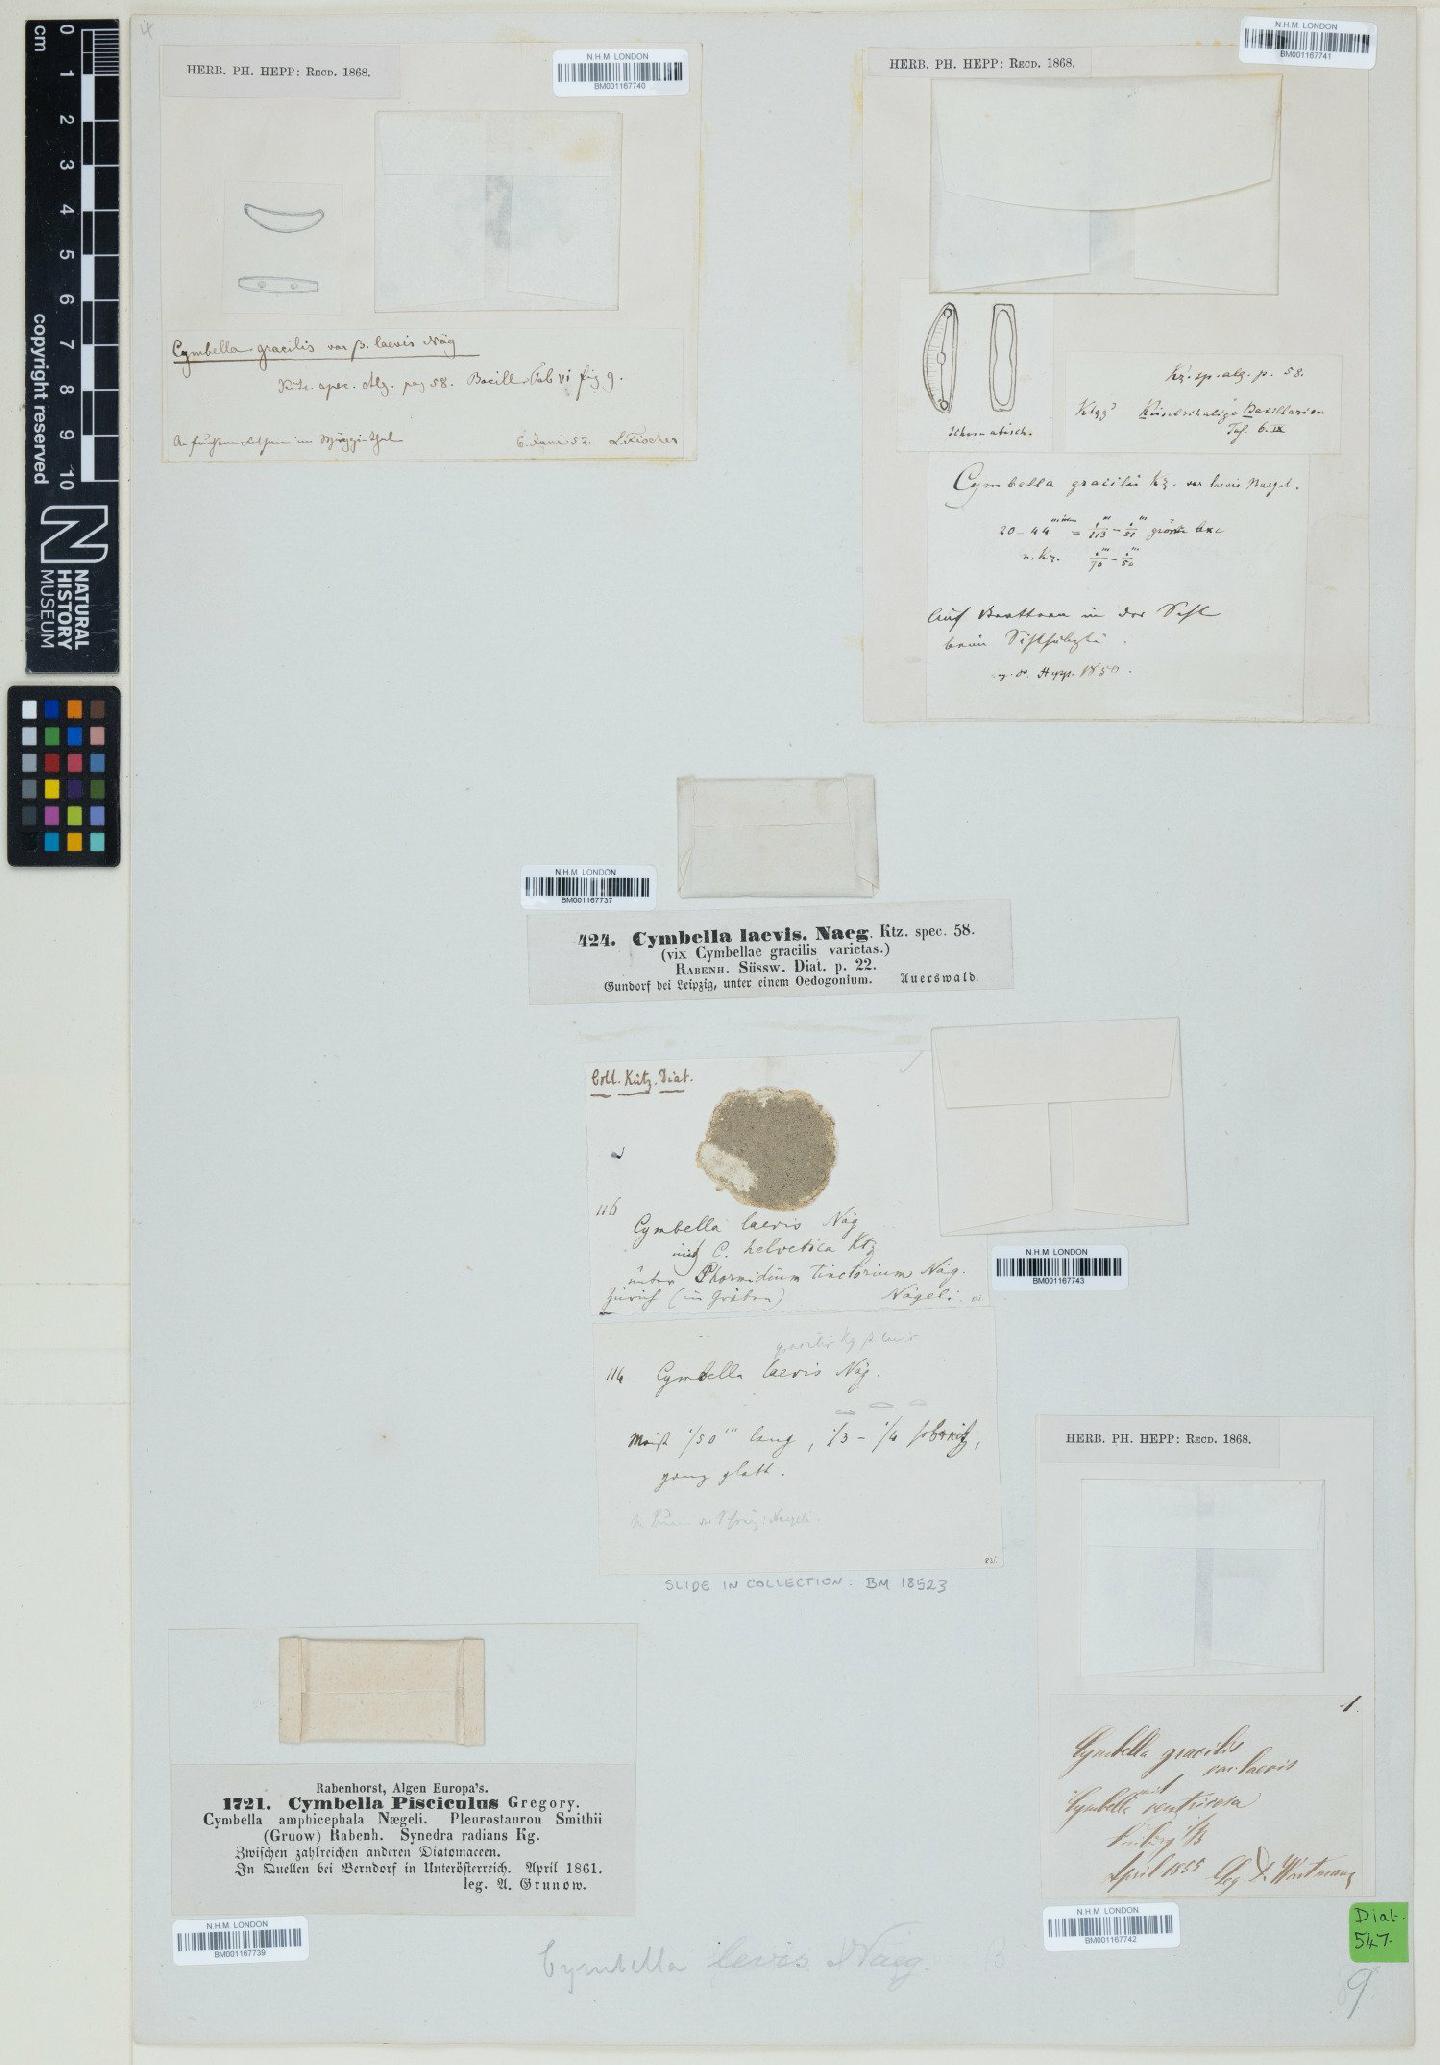 cm
0
1
2
3
4
5
6
7
8
9
10
copyright reserved
NATURAL
HISTORY
MUSEUM
HERB. PH. HEPP: RECD. 1868.
N.H.M. LONDON
BM001167740
Cymbella gracilis var β. laevis Näg
Ktz. spec. Alg. pag 58. Bacill. Tab vi fig 9.
6. Juni 52.
N.H.M. LONDON
BM001167741
HERB. PH. HEPP: RECD. 1868.
Schematisch.
Kz. sp. alg. p. 58.
Kieselschalige Bacillarien
Taf. 6. IX
Cymbella gracilis Kz. var laevis Naegel.
20 - 44
Auf
in der
beim
Hepp. 1850.
N.H.M. LONDON
BM001167737
424. Cymbella laevis. Naeg. Ktz. spec. 58.
(vix Cymbellae gracilis varietas.)
RABENH. Süssw. Diat. p. 22.
Gundorf bei Leipzig, unter einem Oedogonium. Auerswald.
Coll. Kütz. Diat.
116
Cymbella laevis Näg
mit C. helvetica Ktz
unter Phormidium tinctorium Näg.
Zürich (in Gräben) Nägeli.
N.H.M. LONDON
BM001167743
gracilis Kg β laevis
116 Cymbella laevis Näg.
Meist 1/50''' lang, 1/3 - 1/4 so breit,
ganz glatt.
SLIDE IN COLLECTION: BM 18523
HERB. PH. HEPP: RECD. 1868.
1.
Cymbella gracilis
var. laevis
mit
Cymbella ventricosa
Freiburg i/B
April 1855 Leg.
N.H.M. LONDON
BM001167742
Rabenhorst, Algen Europa's.
1721. Cymbella Pisciculus Gregory.
Cymbella amphicephala Nægeli. Pleurostauron Smithii
(Gruow) Rabenh. Synedra radians Kg.
Zwischen zahlreichen anderen Diatomaceen.
In Quellen bei Berndorf in Unterösterreich. April 1861.
leg. A. Grunow.
N.H.M. LONDON
BM001167739
Cymbella levis Naeg.
Diat.
547.
9